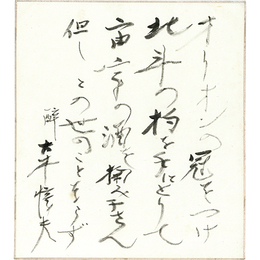 オリオンの冠をつけ
北斗の杓を手にとりて
宙宇の酒を掬べさん
但しこの世のことならず
酔